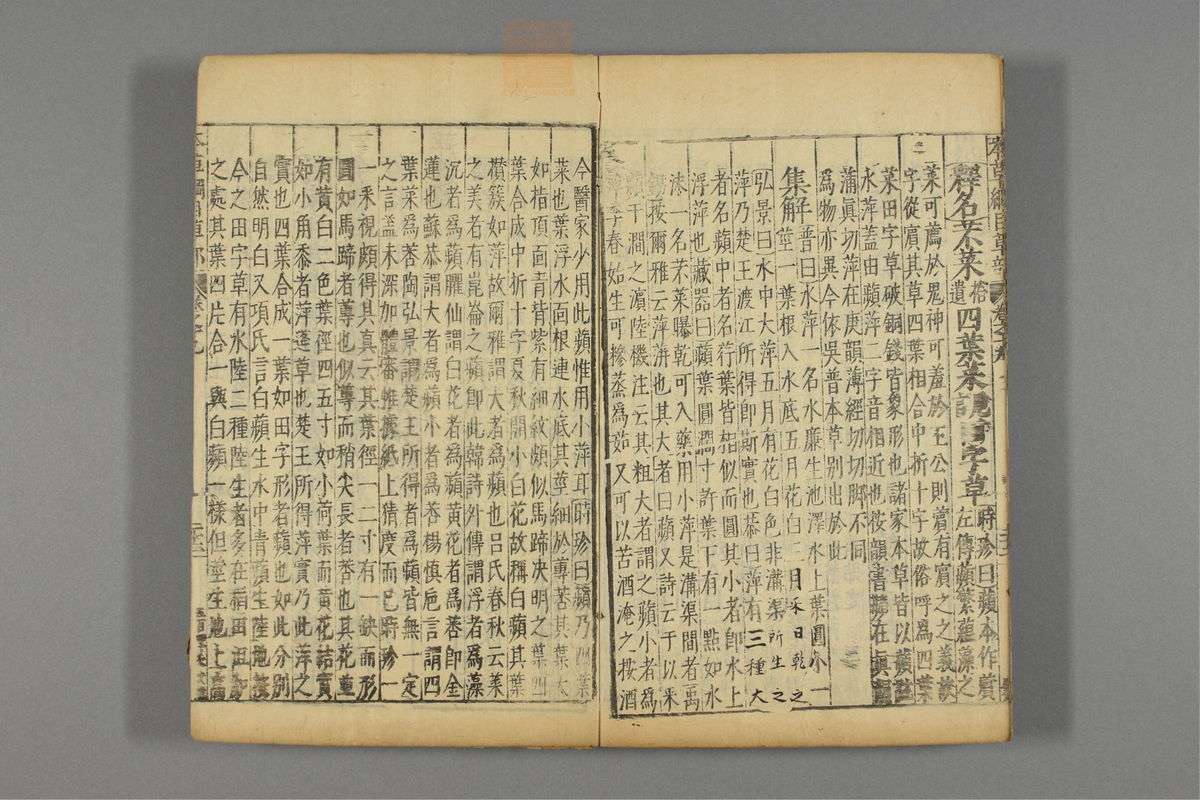 釋名芣菜拾遺四葉菜田字草時珍曰蘋本作薲左傳蘋蘩蘊藻之
菜可薦於鬼神可羞於王公則薲有賓之之義故
字從賓其草四葉相合中折十字故俗呼為四葉
菜田字草破銅錢皆象形也諸家本草皆以蘋
水萍蓋由蘋萍二字音相近也按韻書蘋在真
蒲真切萍在庚韻薄經切切脚不同
為物亦異今依吳普本草別出於此
集解普曰水萍一名水廉生池澤水上葉圓小一
莖一葉根入水底五月花白三月采日乾之
弘景曰水中大萍五月有花白色非溝渠所生之
萍乃楚王渡江所得即斯實也恭曰萍有三種大
者名蘋中者名荇葉皆相似而圓其小者即水上
浮萍也藏器曰蘋葉圓濶寸許葉下有一點如水
沫一名芣菜曝乾可入藥用小萍是溝渠間者禹
錫按爾雅云萍蓱也其大者曰蘋又詩云于以采
蘋于澗之濵陸機注云其粗大者謂之蘋小者為
萍季春始生可糝蒸為茹又可以苦酒淹之按酒
今醫家少用此蘋惟用小萍耳時珍曰蘋乃四葉
菜也葉浮水面根連水底其莖細於蓴莕其葉大
如指頂面青背紫有細紋頗似馬蹄决明之葉四
葉合成中折十字夏秋開小白花故稱白蘋其葉
櫕簇如萍故爾雅謂大者為蘋也呂氏春秋云菜
之美者有崑崙之蘋即此韓詩外傳謂浮者為藻
沉者為蘋臞仙謂白花者為蘋黃花者為莕即金
蓮也蘇恭謂大者為蘋小者為莕楊慎巵言謂四
葉菜為莕陶弘景謂楚王所得者為蘋皆無一定
之言蓋未深加體審惟據紙上猜度而已時珍一
一采視頗得其真云其葉徑一二寸有一缺而形
圓如馬蹄者蓴也似蓴而稍尖長者莕也其花並
有黃白二色葉徑四五寸如小荷葉而黃花結實
如小角黍者萍蓬草也楚王所得萍實乃此萍之
實也四葉合成一葉如田字形者蘋也如此分別
自然明白又項氏言白蘋生水中青蘋生陸地按
今之田字草有水陸二種陸生者多在稻田沮洳
之處其葉四片合一與白蘋一樣但莖生地上高